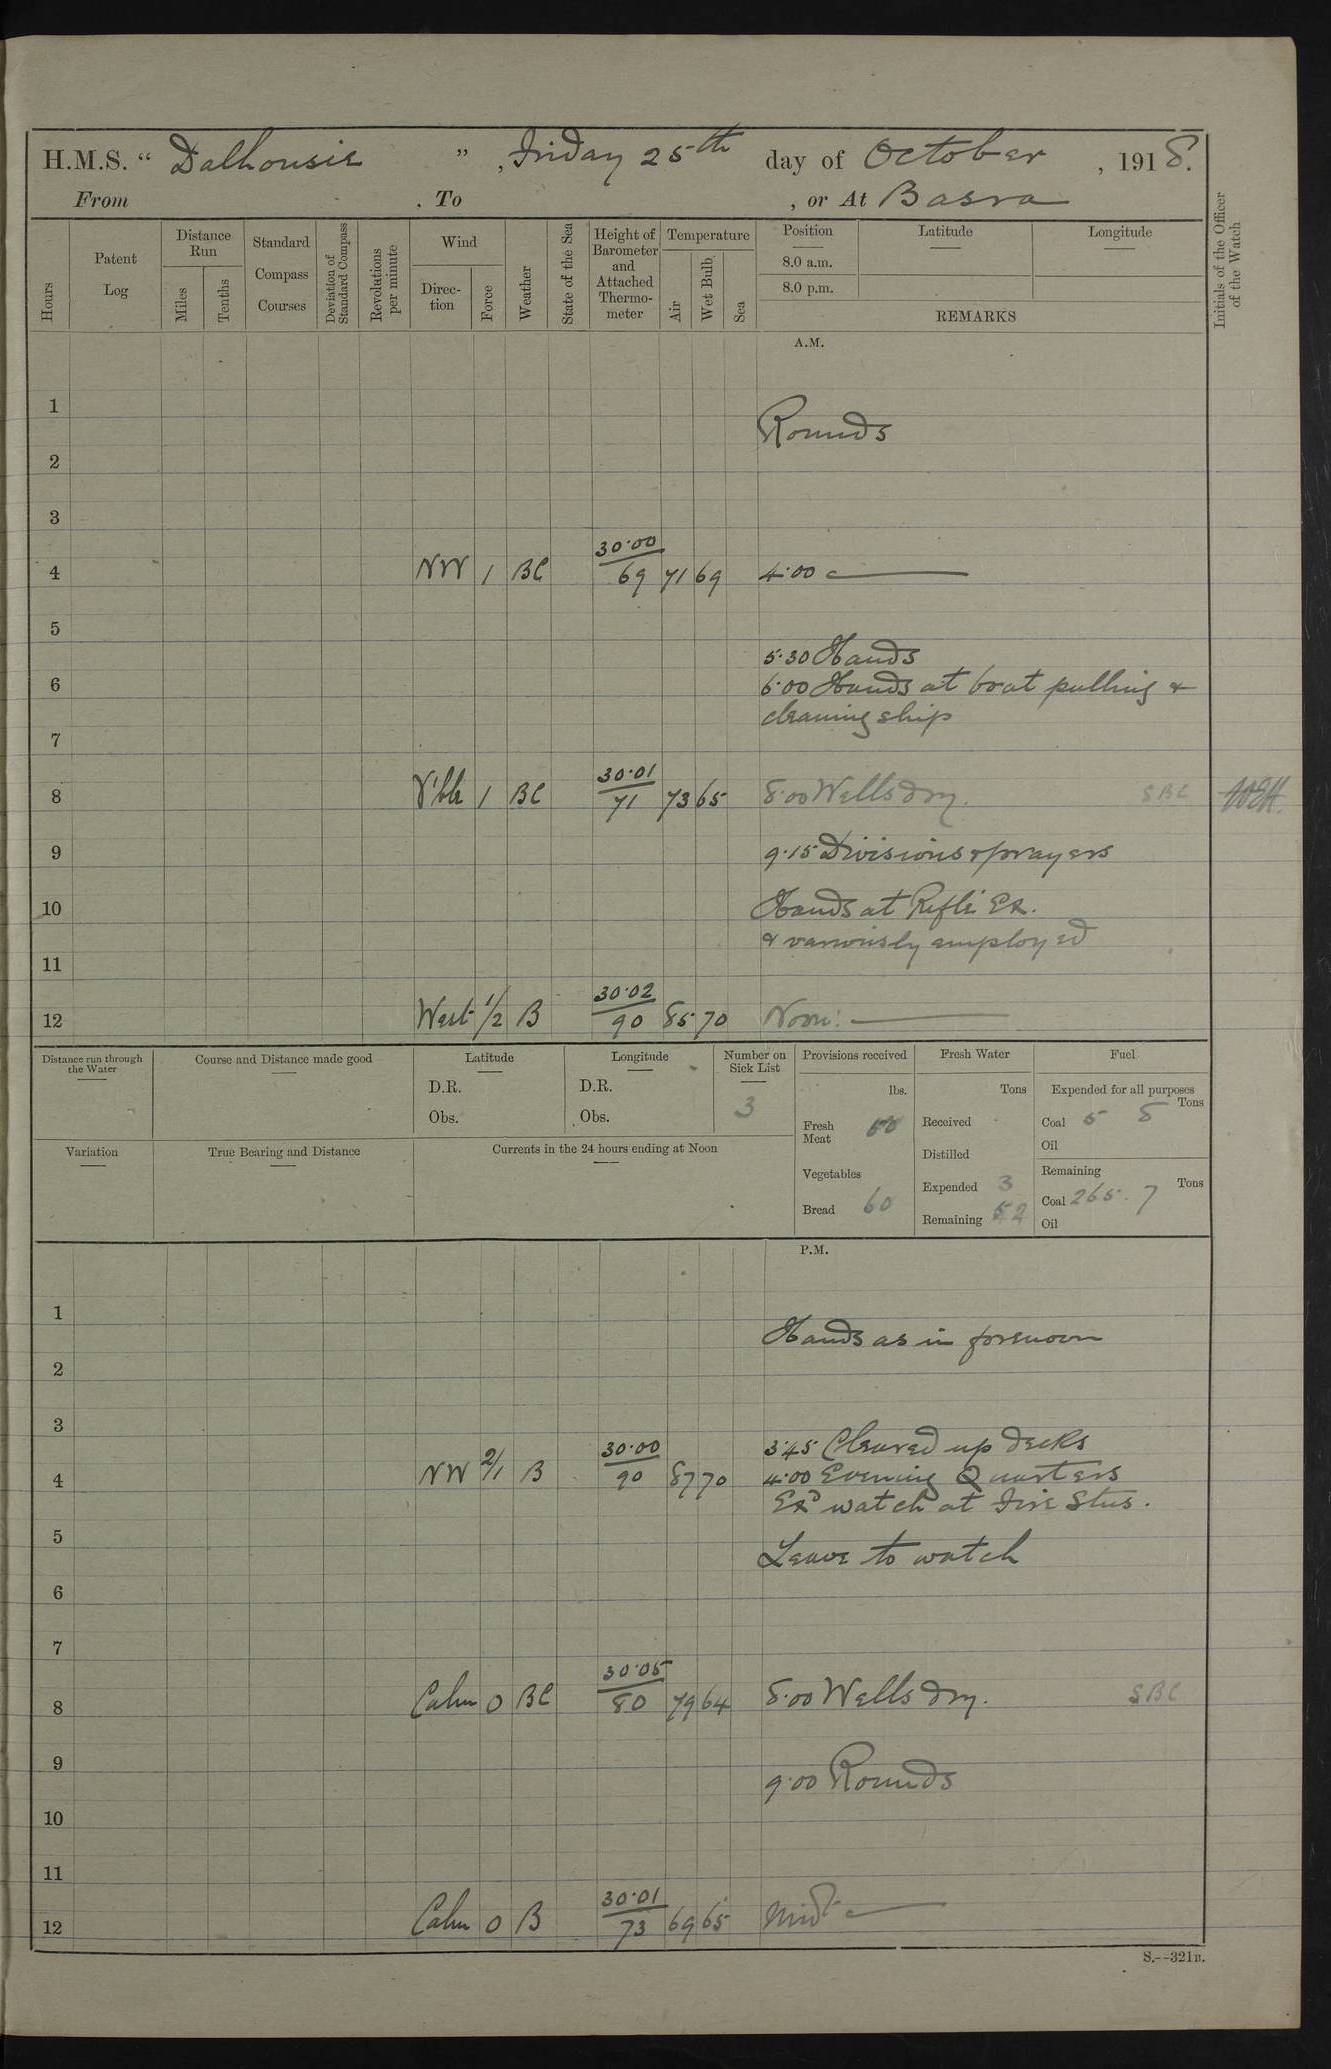 H.M.S. “ Dalhousie ” , Friday 25th day of October , 1918.
From . To , or At Basra
Hours
Patent Log
Distance Run
Miles
Tenths
Standard Compass Courses
Deviation of Standard Compass
Revolutions per minute
Wind
Direction
Force
Weather
State of the Sea
Height of Barometer and Attached Thermometer
Temperature
Air
Wet Bulb
Sea
Position
8.0 a.m.
8.0 p.m.
Latitude
Longitude
REMARKS
Initials of the Officer of the Watch
A.M.
1
Rounds
2
3
30·00
4 NW 1 BC 69 71 69 4·00
5
5·30 Hands
6 6·00 Hands at boat pulling &
cleaning ship
7
30·01
8 V'ble 1 BC 71 73 65 8·00 Wells dry. SBC
9 9·15 Divisions & prayers
10 Hands at Rifle Ex.
& variously employed
11
30·02
12 West 1/2 B 90 85 70 Noon:
Distance run through the Water
Course and Distance made good
Latitude
D.R.
Obs.
Longitude
D.R.
Obs.
Number on Sick List
3
Provisions received
lbs.
Fresh Meat
Vegetables
Bread 60
Fresh Water
Tons
Received
Distilled
Expended 3
Remaining 52
Fuel
Expended for all purposes
Tons
Coal 5 8
Oil
Remaining
Tons
Coal 265. 7
Oil
Variation
True Bearing and Distance
Currents in the 24 hours ending at Noon
P.M.
1
Hands as in forenoon
2
3
30·00 3·45 Cleared up decks
4 NW 2/1 B 90 87 70 4·00 Evening Quarters
Exd watch at Fire Stns.
5
Leave to watch
6
7
30·05
8 Calm 0 BC 80 79 64 8·00 Wells dry. SBC
9
9·00 Rounds
10
11
30·01
12 Calm 0 B 73 69 65 Midt
S.--321B.